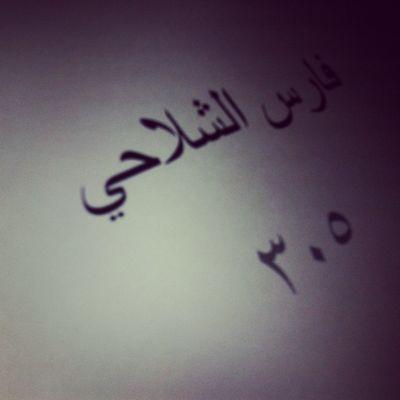 فارس الشلاحي
٣٠٥